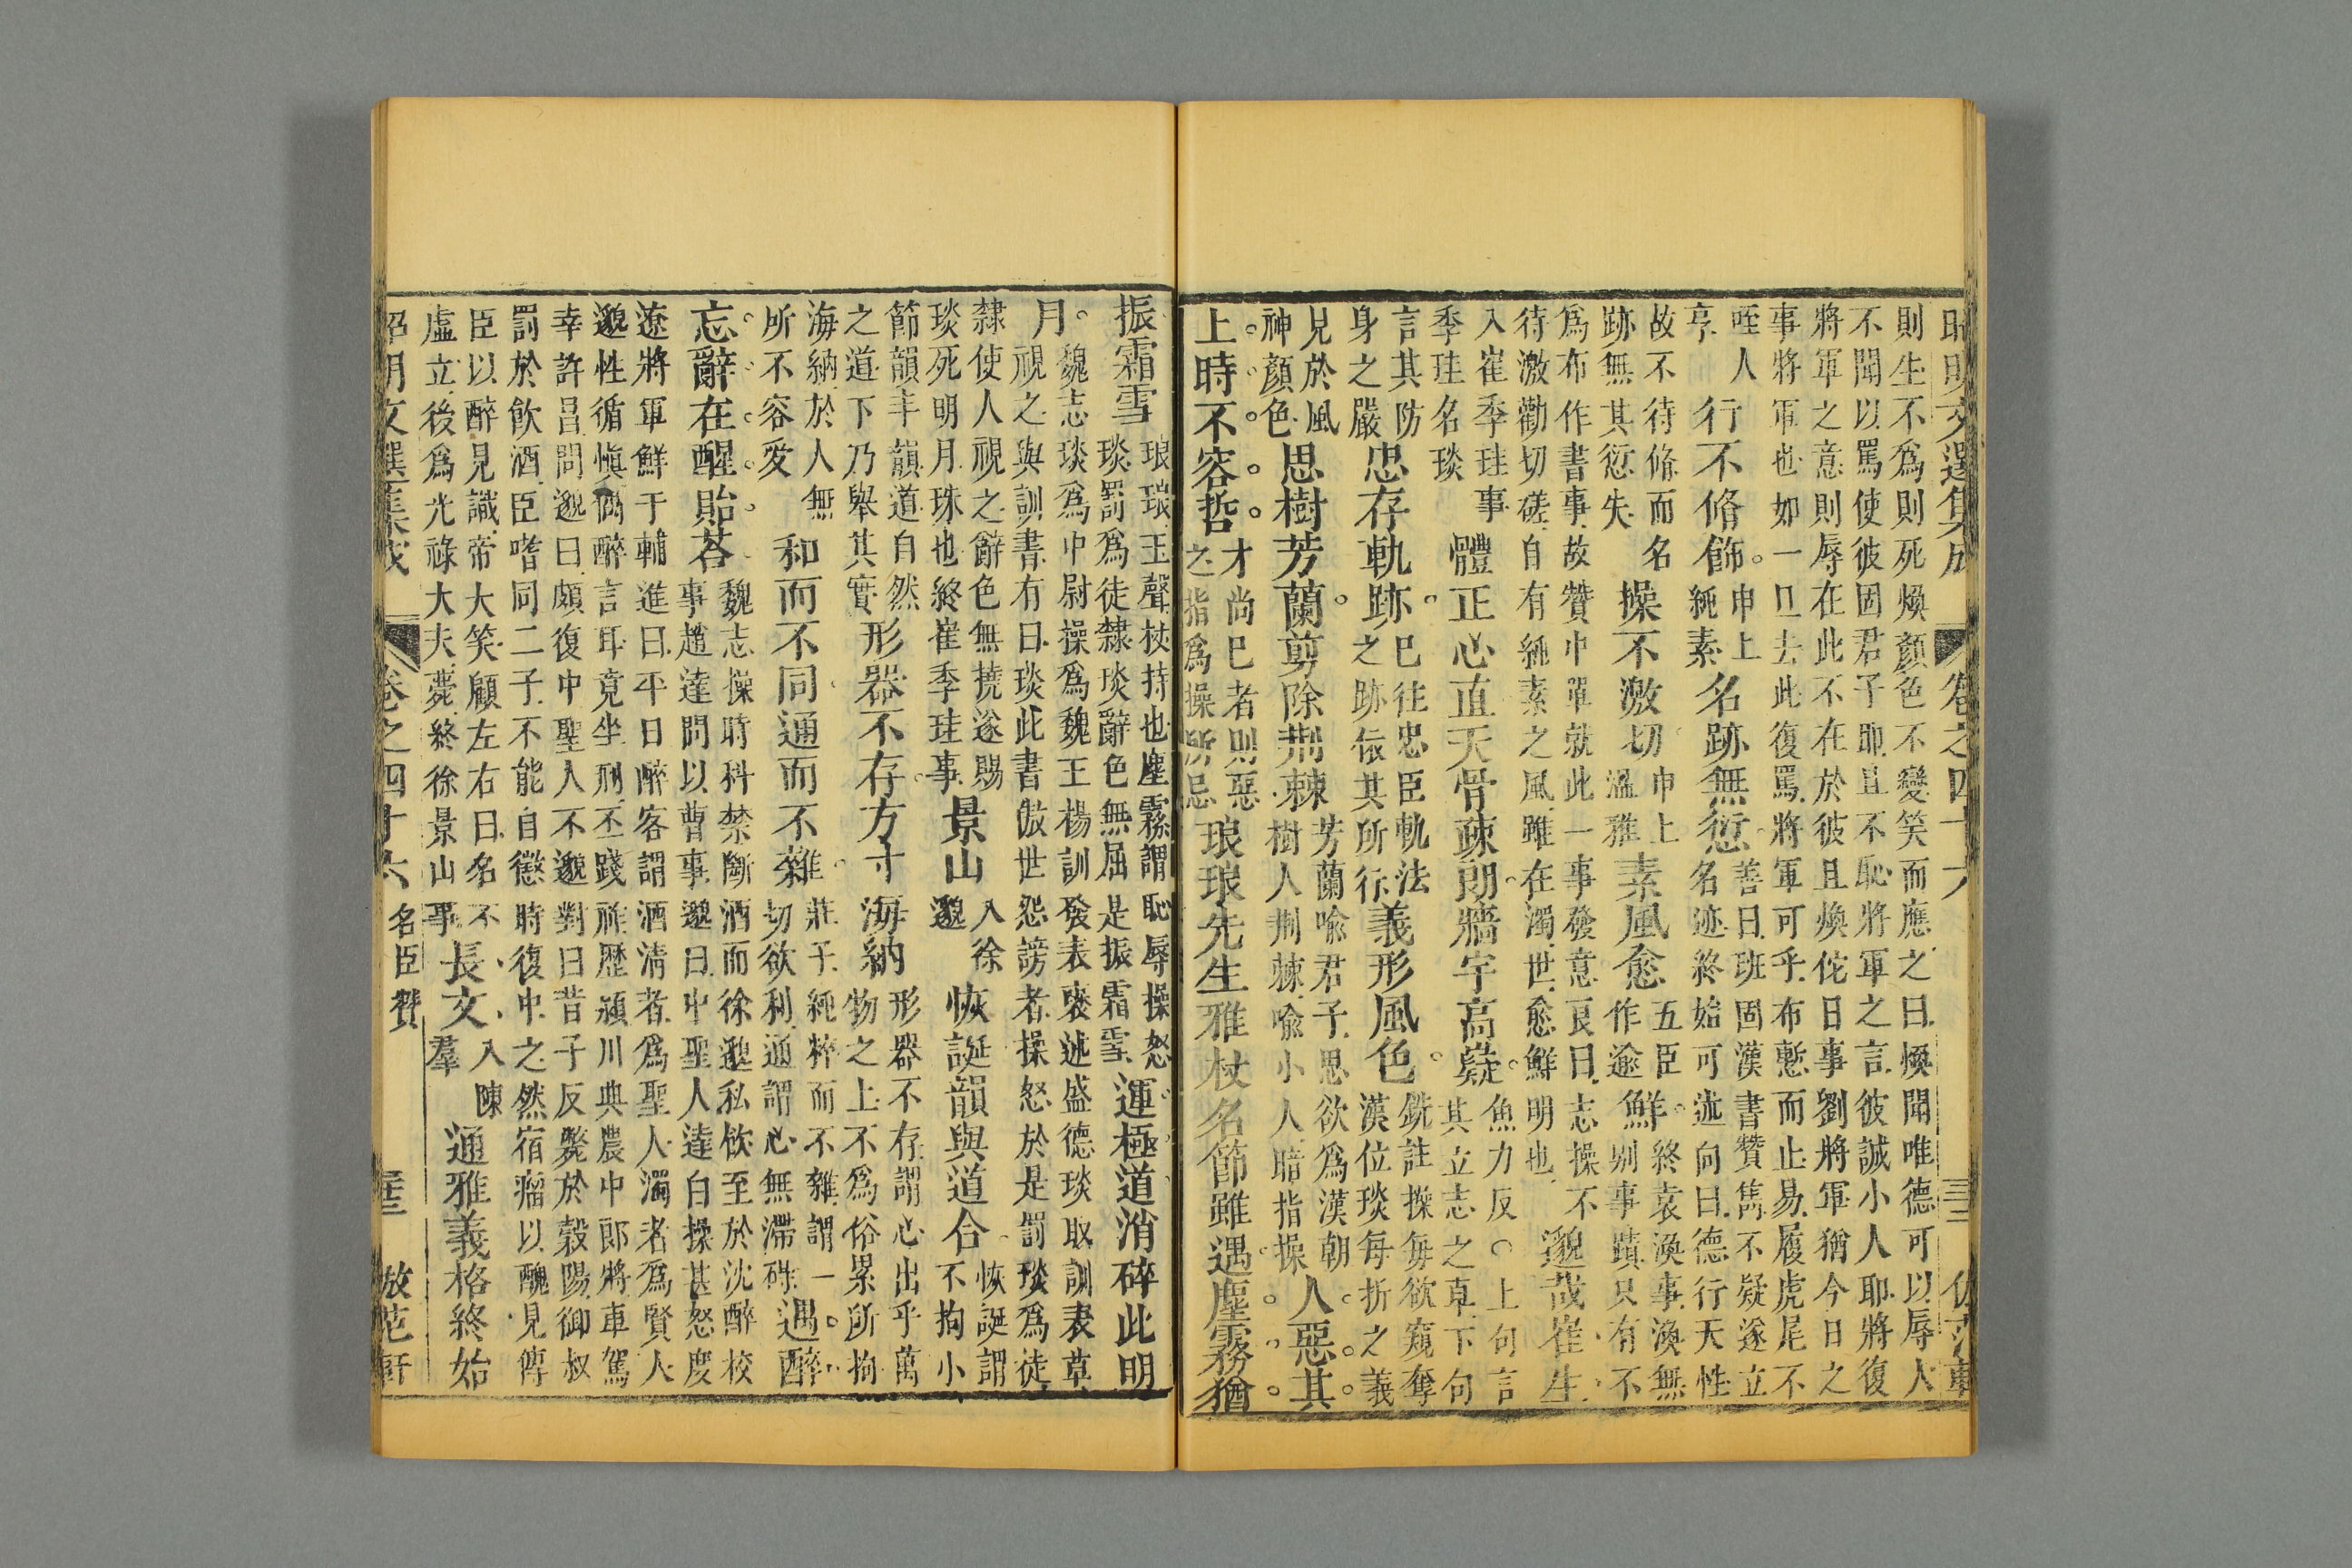 昭明文選集成 卷之四十六 三三 仿范軒
則生不爲則死煥顏色不變笑而應之曰煥聞唯德可以辱人
不聞以罵使彼固君子耶且不恥將軍之言彼誠小人耶將復
將軍之意則辱在此不在於彼且煥佗日事劉將軍猶今日之
事將軍也如一旦去此復罵將軍可乎布慙而止易履虎尾不
咥人亨 行不脩飾。申上純素 名跡無愆。善曰班固漢書贊雋不疑遂立名迹終始可述向曰德行天性
故不待脩而名跡無其愆失 操不激切 申上溫雅 素風愈 五臣作逾 鮮。終袁渙事渙無別事蹟只有不
爲布作書事故贊中單就此一事發意良曰志操不待激勸切磋自有純素之風雖在濁世愈鮮明也 邈哉崔生
入崔季珪事季珪名琰 體正心直天骨疎朗。牆宇高嶷。魚力反○上句言其立志之卓下句
言其防身之嚴 忠存軌跡。已往忠臣軌法之跡依其所行 義形風色。銑註操每欲窺奪漢位琰每折之義
見於風神顏色 思樹芳蘭。剪除荆棘 芳蘭喩君子思欲爲漢朝樹人荆棘喩小人暗指操 人。惡。其。
上。時。不。容。哲。才尚已者則惡之指爲操所忌 琅琅先生雅杖名節雖遇。塵。霧。猶。
振霜雪 琅琅玉聲杖持也塵霧謂恥辱操怒琰罰爲徒隸琰辭色無屈是振霜雪 運極道消碎此明
月。魏志琰爲中尉操爲魏王楊訓發表襃述盛德琰取訓表草視之與訓書有曰琰此書傲世怨謗者操怒於是罰琰爲徒
隸使人視之辭色無撓遂賜琰死明月珠也終崔季珪事 景山 入徐邈 恢誕韻與道合。恢誕謂不拘小
節韻丰韻道自然之道下乃舉其實 形器不存。方寸海納 形器不存謂心出乎萬物之上不爲俗累所拘
海納於人無所不容愛 和而不同通而不雜。莊子純粹而不雜謂一切欲利通謂心無滯硋 遇。醉
忘。辭。在。醒。貽。荅 魏志操時科禁斷酒而徐邈私飲至於沈醉校事趙達問以曹事邈曰中聖人達白操甚怒度
遼將軍鮮于輔進曰平日醉客謂酒清者爲聖人濁者爲賢人
邈性循愼偶醉言耳竟坐刑丕踐祚歷潁川典農中郎將車駕
幸許昌問邈曰頗復中聖人不邈對曰昔子反斃於穀陽御叔
罰於飲酒臣嗜同二子不能自懲時復中之然宿瘤以醜見傳
臣以醉見識帝大笑顧左右曰名不虛立後爲光祿大夫薨終徐景山事 長文 入陳羣 通雅義格終始
昭明文選集成 卷之四十六 名臣贊 三三 仿范軒